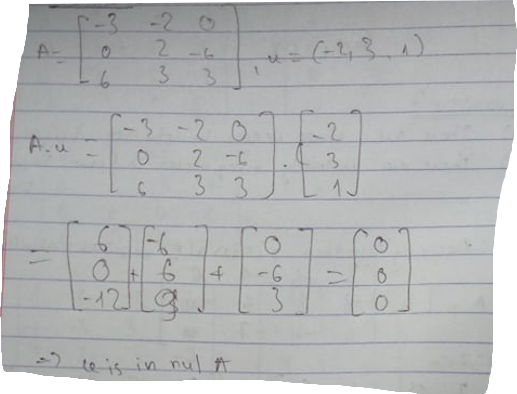 A = [ -3 -2 0
0 2 -6
6 3 3 ], u = (-2, 3, 1)
A.u = [ -3 -2 0
0 2 -6
6 3 3 ] . [ -2
3
1 ]
= [ 6
0
-12 ] + [ -6
6
9 ] + [ 0
-6
3 ] = [ 0
0
0 ]
=> u is in nul A